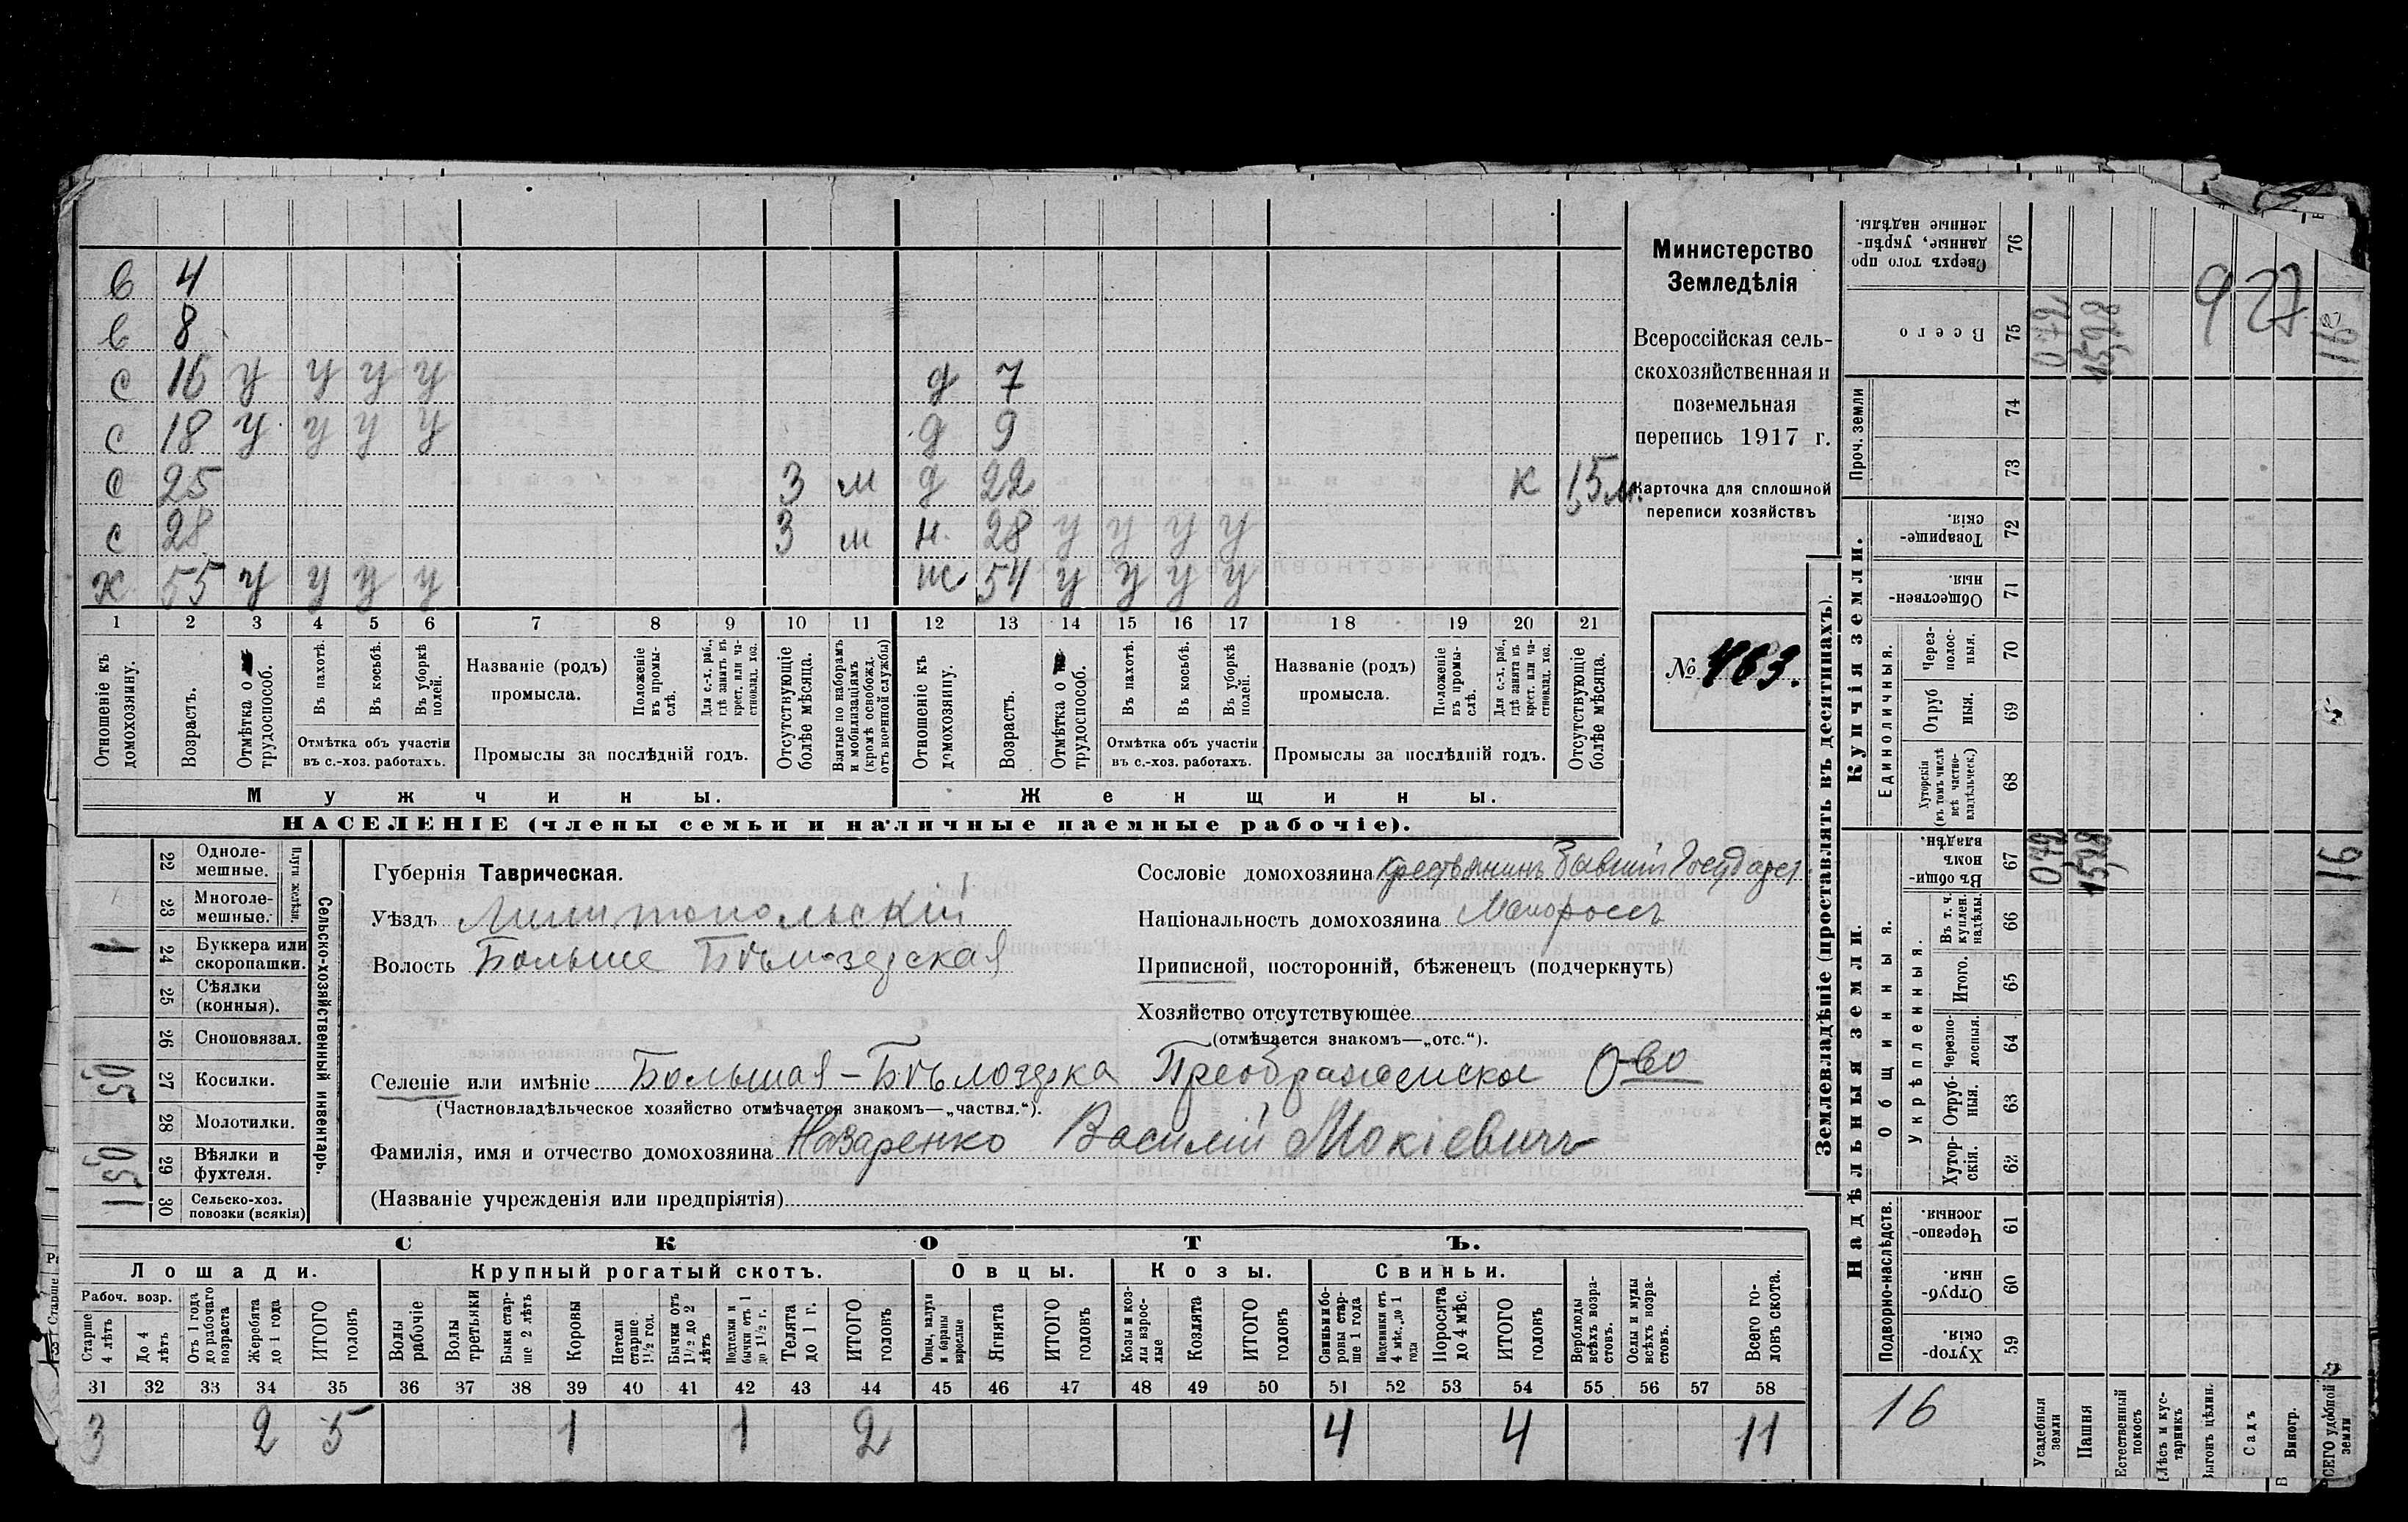 в 4
в 8
с 16 у у у у д 7
с 18 у у у у д 9
с 25 3 м д 22 к 15 м.
с 28 3 м н. 28 у у у у
х 55 у у у у ж 54 у у у у
1 2 3 4 5 6 7 8 9 10 11 12 13 14 15 16 17 18 19 20 21
Отношеніе къ домохозяину.
Возрастъ.
Отмѣтка о трудоспособ.
Въ пахотѣ.
Въ косьбѣ.
Въ уборкѣ полей.
Отмѣтка объ участіи
въ с.-хоз. работахъ.
Названіе (родъ)
промысла.
Положеніе въ промы-слѣ.
Для с.-х. раб., гдѣ занятъ въ крест. или ча-стновлад. хоз.
Промыслы за послѣдній годъ.
Отсутствующіе болѣе мѣсяца.
Взятые по наборамъ и мобилизаціямъ (кромѣ освобожд. отъ военной службы)
Отношеніе къ домохозяину.
Возрастъ.
Отмѣтка о трудоспособ.
Въ пахотѣ.
Въ косьбѣ.
Въ уборкѣ полей.
Отмѣтка объ участіи
въ с.-хоз. работахъ.
Названіе (родъ)
промысла.
Положеніе въ промы-слѣ.
Для с.-х. раб., гдѣ занята въ крест. или ча-стновлад. хоз.
Промыслы за послѣдній годъ.
Отсутствующіе болѣе мѣсяца.
Мужчины. Женщины.
НАСЕЛЕНІЕ (члены семьи и наличные наемные рабочіе).
Министерство
Земледѣлія
Всероссійская сель-
скохозяйственная и
поземельная
перепись 1917 г.
Карточка для сплошной
переписи хозяйствъ
№ 463.
Сельско-хозяйственный инвентарь.
Плуги желѣзн.
22 Одноле-мешные.
23 Многоле-мешные.
1 24 Буккера или скоропашки.
25 Сѣялки (конныя).
26 Сноповязал.
05 27 Косилки.
28 Молотилки.
05 29 Вѣялки и фухтеля.
1 30 Сельско-хоз. повозки (всякія)
Губернія Таврическая.
Уѣздъ Мелитопольскій
Волость Больше Бѣлозерская
Сословіе домохозяина крестьянинъ бывшій Государст
Національность домохозяина Малороссъ
Приписной, посторонній, бѣженецъ (подчеркнуть)
Хозяйство отсутствующее
(отмѣчается знакомъ—„отс.“).
Селеніе или имѣніе Большая-Бѣлозерка Преображенское О-во
(Частновладѣльческое хозяйство отмѣчается знакомъ—„частвл.“).
Фамилія, имя и отчество домохозяина Назаренко Василій Мокіевичъ
(Названіе учрежденія или предпріятія)
СКОТЪ.
Лошади. Крупный рогатый скотъ. Овцы. Козы. Свиньи.
Рабоч. возр.
Старше 4 лѣтъ
До 4 лѣтъ
Отъ 1 года до рабочаго возраста
Жеребята до 1 года
ИТОГО головъ
Волы рабочіе
Волы третьяки
Быки стар-ше 2 лѣтъ
Коровы
Нетели старше 1½ год.
Бычки отъ 1½ до 2 лѣтъ
Подтелки и бычки отъ 1 до 1½ г.
Телята до 1 г.
ИТОГО головъ
Овцы, валухи и бараны взрослые
Ягнята
ИТОГО головъ
Козы и коз-лы взрос-лые
Козлята
ИТОГО головъ
Свиньи и бо-ровы стар-ше 1 года
Подсвинки отъ 4 мѣс. до 1 года
Поросята до 4 мѣс.
ИТОГО головъ
Верблюды всѣхъ возра-стовъ.
Ослы и мулы всѣхъ возра-стовъ.
Всего го-ловъ скота.
31 32 33 34 35 36 37 38 39 40 41 42 43 44 45 46 47 48 49 50 51 52 53 54 55 56 57 58
3 2 5 1 1 2 4 4 11
Землевладѣніе (проставлять въ десятинахъ).
Купчія земли.
Надѣльныя земли.
Проч. земли
Единоличныя.
Общинныя.
Укрѣпленныя.
Подворно-наслѣдств.
Сверхъ того про данные, укрѣп-ленные надѣлы. 76
Всего 75
74
73
Товарище-скія. 72
Обществен-ныя. 71
Через-полос-ныя. 70
Отруб ныя. 69
Хуторскія (въ томъ числѣ всѣ частно-владѣльческ.) 68
Въ общи-номъ владѣн. 67
Въ т. ч. куплен. надѣлы. 66
Итого. 65
Черезпо-лосныя. 64
Отруб-ныя. 63
Хутор-скія. 62
Черезпо-лосныя. 61
Отруб-ныя. 60
Хутор-скія. 59
927
16
16
16
Усадебныя земли
Пашня
Естественный покосъ
Лѣсъ и кус-тарникъ
Выгонъ цѣлин.
Садъ
Виногр.
ВСЕГО удобной земли